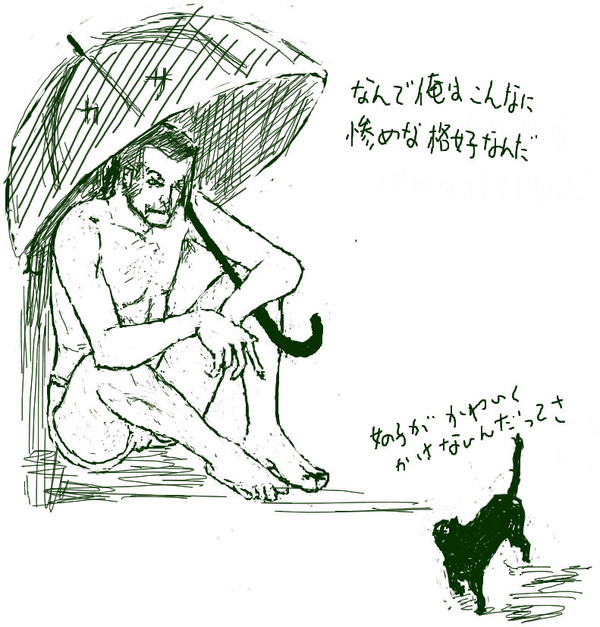 カサ
なんで俺はこんなに
惨めな格好なんだ
女の子が かわいく
かけないんだってさ